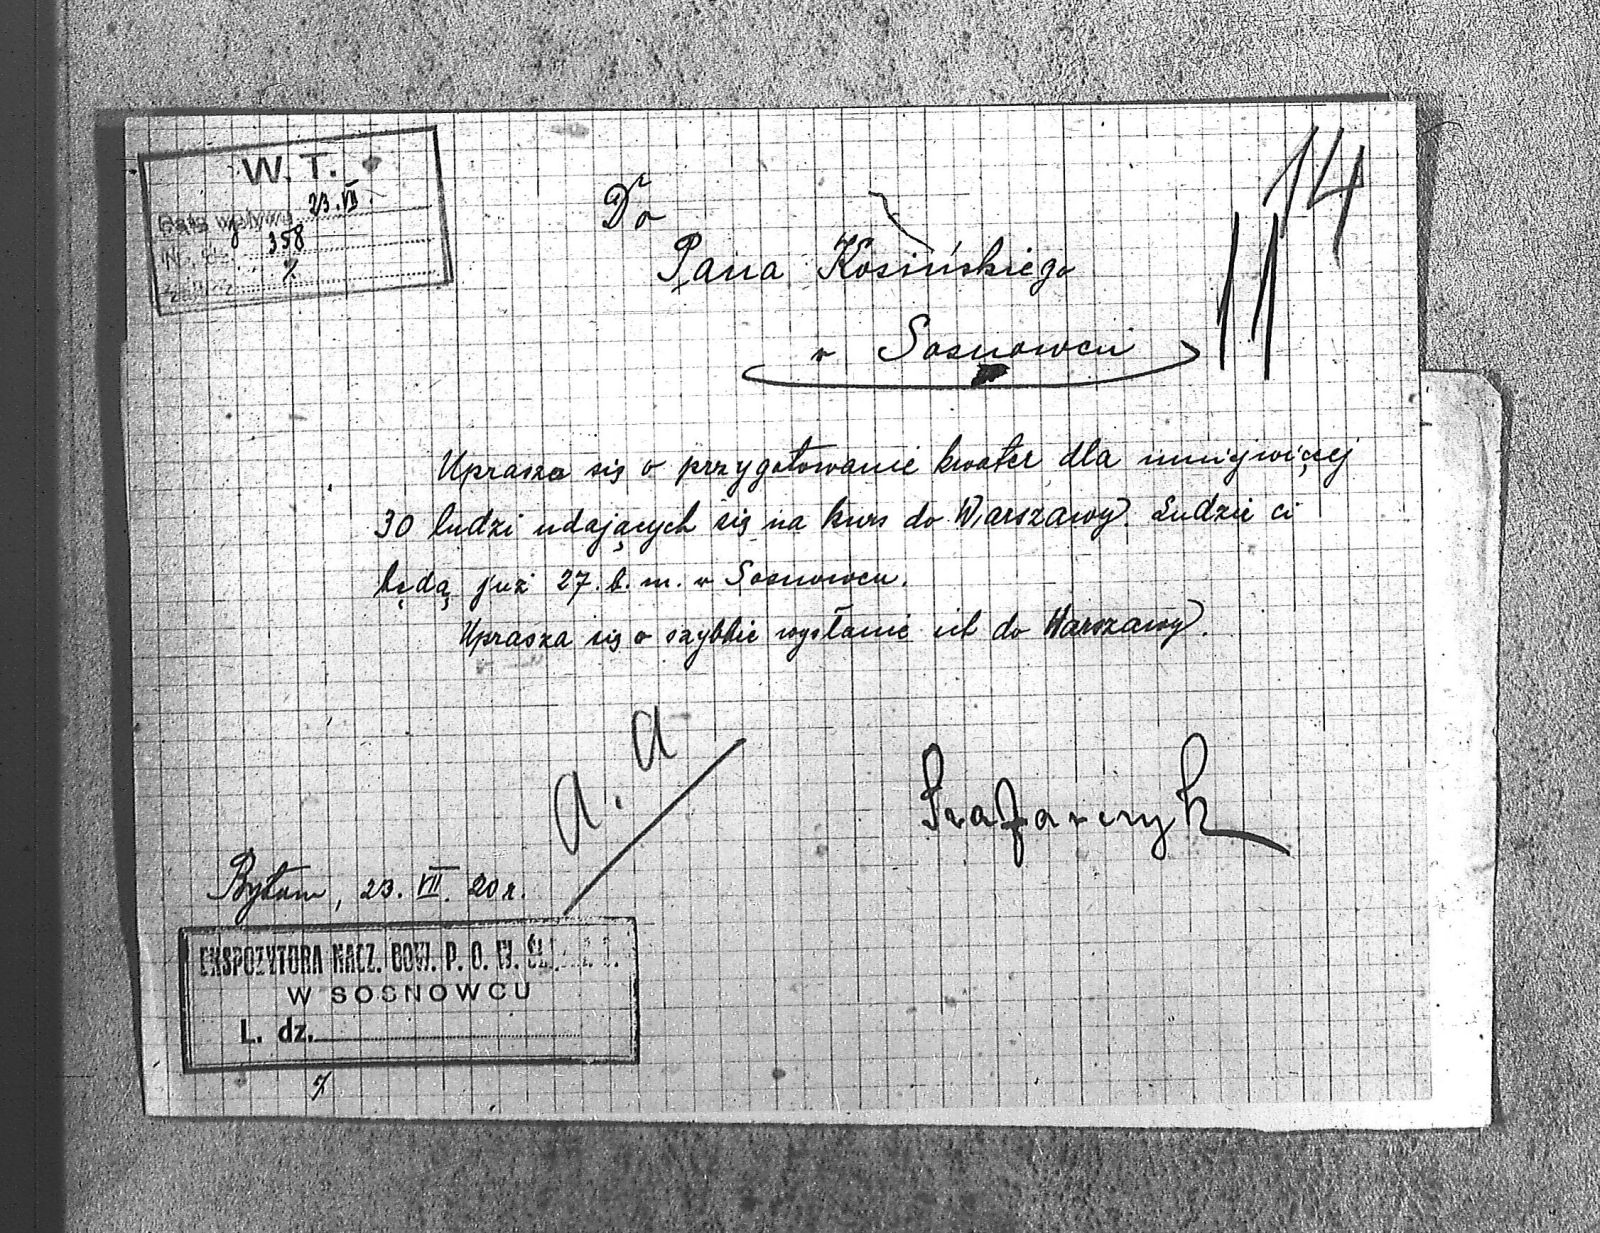 W. T.
Data wpływu 23.VII.
Nr. dz. 358
Do
Pana Kosińskiego
w Sosnowcu
14
11
Uprasza się o przygotowanie kwater dla mniejwięcej
30 ludzi udających się na kurs do Warszawy. Ludzie ci
będą już 27. b. m. w Sosnowcu.
Uprasza się o szybkie wysłanie ich do Warszawy.
a. a
Bytom, 23. VII. 20 r.
EKSPOZYTURA NACZ. DOW. P. O. W. ŚL.
W SOSNOWCU
L. dz.